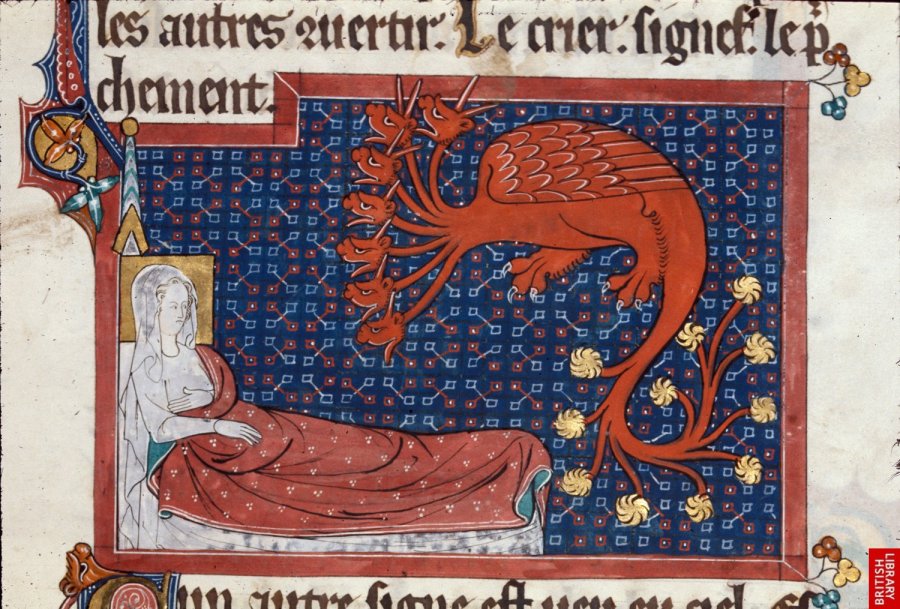 les autres ꝯuertir. Le crier. signef᷑. le p̃
chement.
un autre signe est ueu en ciel.
BRITISH
LIBRARY